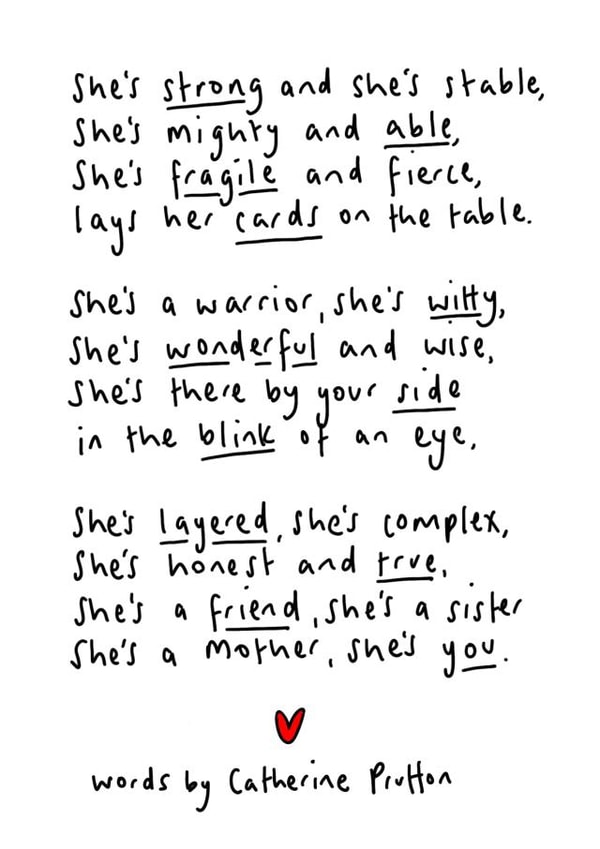 She's strong and she's stable,
She's mighty and able,
She's fragile and fierce,
lays her cards on the table.
She's a warrior, she's witty,
She's wonderful and wise,
She's there by your side
in the blink of an eye.
She's layered, she's complex,
She's honest and true,
She's a friend, she's a sister
She's a mother, she's you.
words by Catherine Prutton